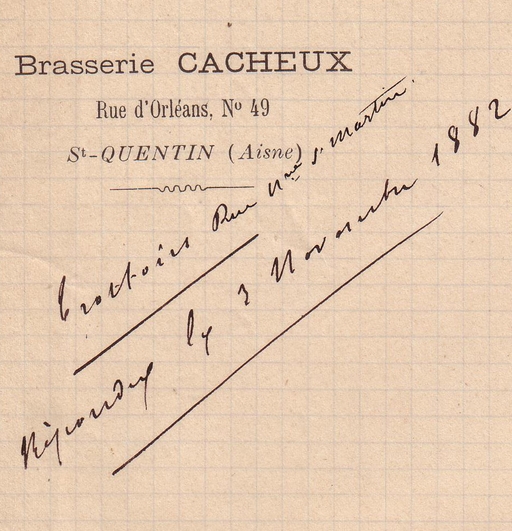 Brasserie CACHEUX
Rue d'Orléans, Nº 49
St-QUENTIN (Aisne)
Trottoirs Rue Nve St Martin.
Répondu le 3 Novembre 1882